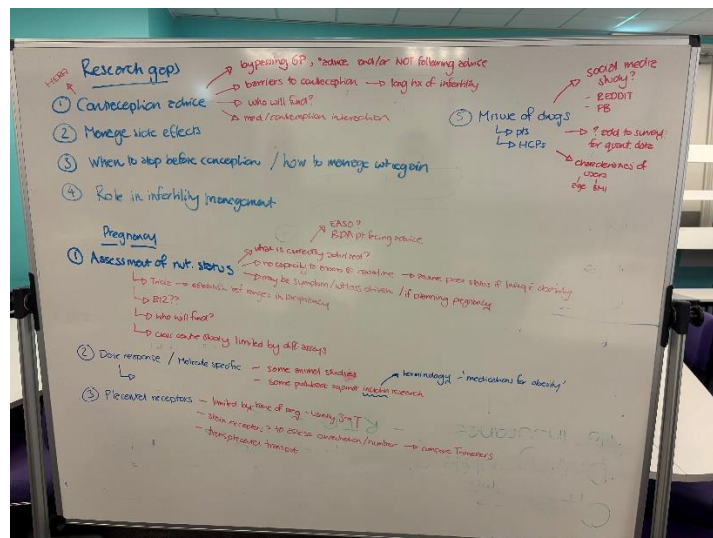 Research gaps
HERA
① Contraception advice
bypassing GP, advice and/or NOT following advice
barriers to contraception → long hx of infertility
who will fund?
med/contraception interaction
② Manage side effects
③ When to stop before conception / how to manage wt regain
④ Role in infertility management
⑤ Misuse of drugs
↳ pts
↳ HCPs
social media study?
- REDDIT
- FB
? add to survey for quant. data
characteristics of users
age BMI
Pregnancy
① Assessment of nut. status
what is currently advised?
EASO?
BDA pt facing advice
no capacity to assess @ baseline → assume poor status if living c̄ obesity
may be symptom/wt loss driven / if planning pregnancy
↳ Trace → establish ref ranges in pregnancy
↳ B12??
↳ who will fund?
↳ cross centre study limited by diff assays
② Dose response / Molecule specific
↳
- some animal studies
- some pushback against incretin research
terminology - 'medications for obesity'
③ Placental receptors
- limited by time of preg - usually 3rd T
- stain receptors? to assess concentration/number → compare Trimesters
- transplacental transport